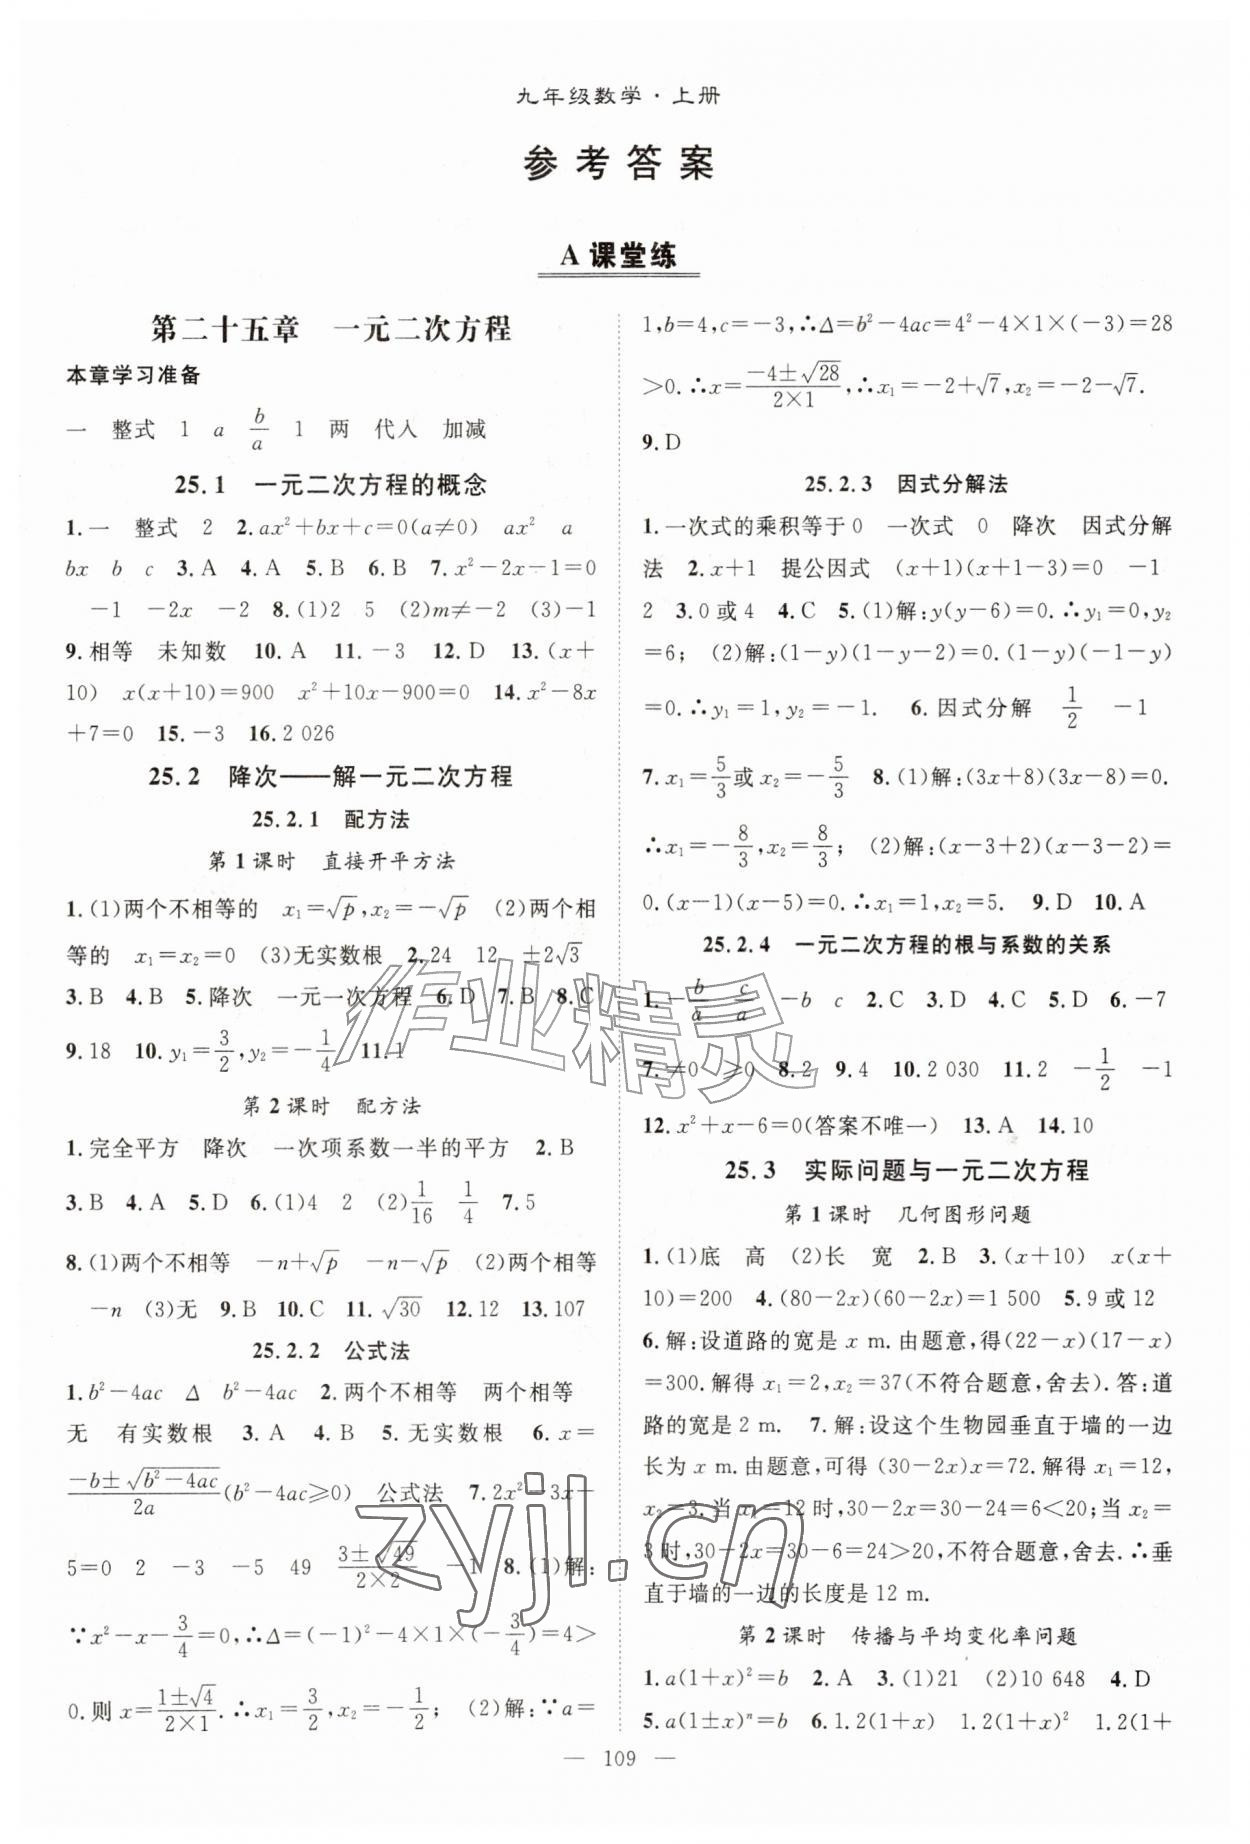 九年级数学·上册
参考答案
A 课堂练
第二十五章　一元二次方程
本章学习准备
一　整式　1　a　b/a　1　两　代入　加减
25.1　一元二次方程的概念
1.一　整式　2　2.ax²+bx+c=0(a≠0)　ax²　a
bx　b　c　3.A　4.A　5.B　6.B　7.x²-2x-1=0
-1　-2x　-2　8.(1)2　5　(2)m≠-2　(3)-1
9.相等　未知数　10.A　11.-3　12.D　13.(x+
10)　x(x+10)=900　x²+10x-900=0　14.x²-8x
+7=0　15.-3　16.2 026
25.2　降次——解一元二次方程
25.2.1　配方法
第1课时　直接开平方法
1.(1)两个不相等的　x₁=√p,x₂=-√p　(2)两个相
等的　x₁=x₂=0　(3)无实数根　2.24　12　±2√3
3.B　4.B　5.降次　一元一次方程　6.D　7.B　8.C
9.18　10.y₁=3/2,y₂=-1/4　11.1
第2课时　配方法
1.完全平方　降次　一次项系数一半的平方　2.B
3.B　4.A　5.D　6.(1)4　2　(2)1/16　1/4　7.5
8.(1)两个不相等　-n+√p　-n-√p　(2)两个相等
-n　(3)无　9.B　10.C　11.√30　12.12　13.107
25.2.2　公式法
1.b²-4ac　Δ　b²-4ac　2.两个不相等　两个相等
无　有实数根　3.A　4.B　5.无实数根　6.x=
(-b±√(b²-4ac))/2a(b²-4ac≥0)　公式法　7.2x²-3x-
5=0　2　-3　-5　49　(3±√49)/(2×2)　-1　8.(1)解:
∵x²-x-3/4=0,∴Δ=(-1)²-4×1×(-3/4)=4>
0.则x=(1±√4)/(2×1).∴x₁=3/2,x₂=-1/2;　(2)解:∵a=
1,b=4,c=-3,∴Δ=b²-4ac=4²-4×1×(-3)=28
>0.∴x=(-4±√28)/(2×1),∴x₁=-2+√7,x₂=-2-√7.
9.D
25.2.3　因式分解法
1.一次式的乘积等于0　一次式　0　降次　因式分解
法　2.x+1　提公因式　(x+1)(x+1-3)=0　-1
2　3.0或4　4.C　5.(1)解:y(y-6)=0.∴y₁=0,y₂
=6;　(2)解:(1-y)(1-y-2)=0.(1-y)(-1-y)
=0.∴y₁=1,y₂=-1.　6.因式分解　1/2　-1
7.x₁=5/3或x₂=-5/3　8.(1)解:(3x+8)(3x-8)=0.
∴x₁=-8/3,x₂=8/3;　(2)解:(x-3+2)(x-3-2)=
0.(x-1)(x-5)=0.∴x₁=1,x₂=5.　9.D　10.A
25.2.4　一元二次方程的根与系数的关系
1.-b/a　c/a　-b　c　2.C　3.D　4.C　5.D　6.-7
7.≠0　≥0　8.2　9.4　10.2 030　11.2　-1/2　-1
12.x²+x-6=0(答案不唯一)　13.A　14.10
25.3　实际问题与一元二次方程
第1课时　几何图形问题
1.(1)底　高　(2)长　宽　2.B　3.(x+10)　x(x+
10)=200　4.(80-2x)(60-2x)=1 500　5.9或12
6.解:设道路的宽是x m.由题意,得(22-x)(17-x)
=300.解得x₁=2,x₂=37(不符合题意,舍去).答:道
路的宽是2 m.　7.解:设这个生物园垂直于墙的一边
长为x m.由题意,可得(30-2x)x=72.解得x₁=12,
x₂=3.当x₁=12时,30-2x=30-24=6<20;当x₂=
3时,30-2x=30-6=24>20,不符合题意,舍去.∴垂
直于墙的一边的长度是12 m.
第2课时　传播与平均变化率问题
1.a(1+x)²=b　2.A　3.(1)21　(2)10 648　4.D
5.a(1±x)ⁿ=b　6.1.2(1+x)　1.2(1+x)²　1.2(1+
— 109 —
作业精灵
zyjl.cn